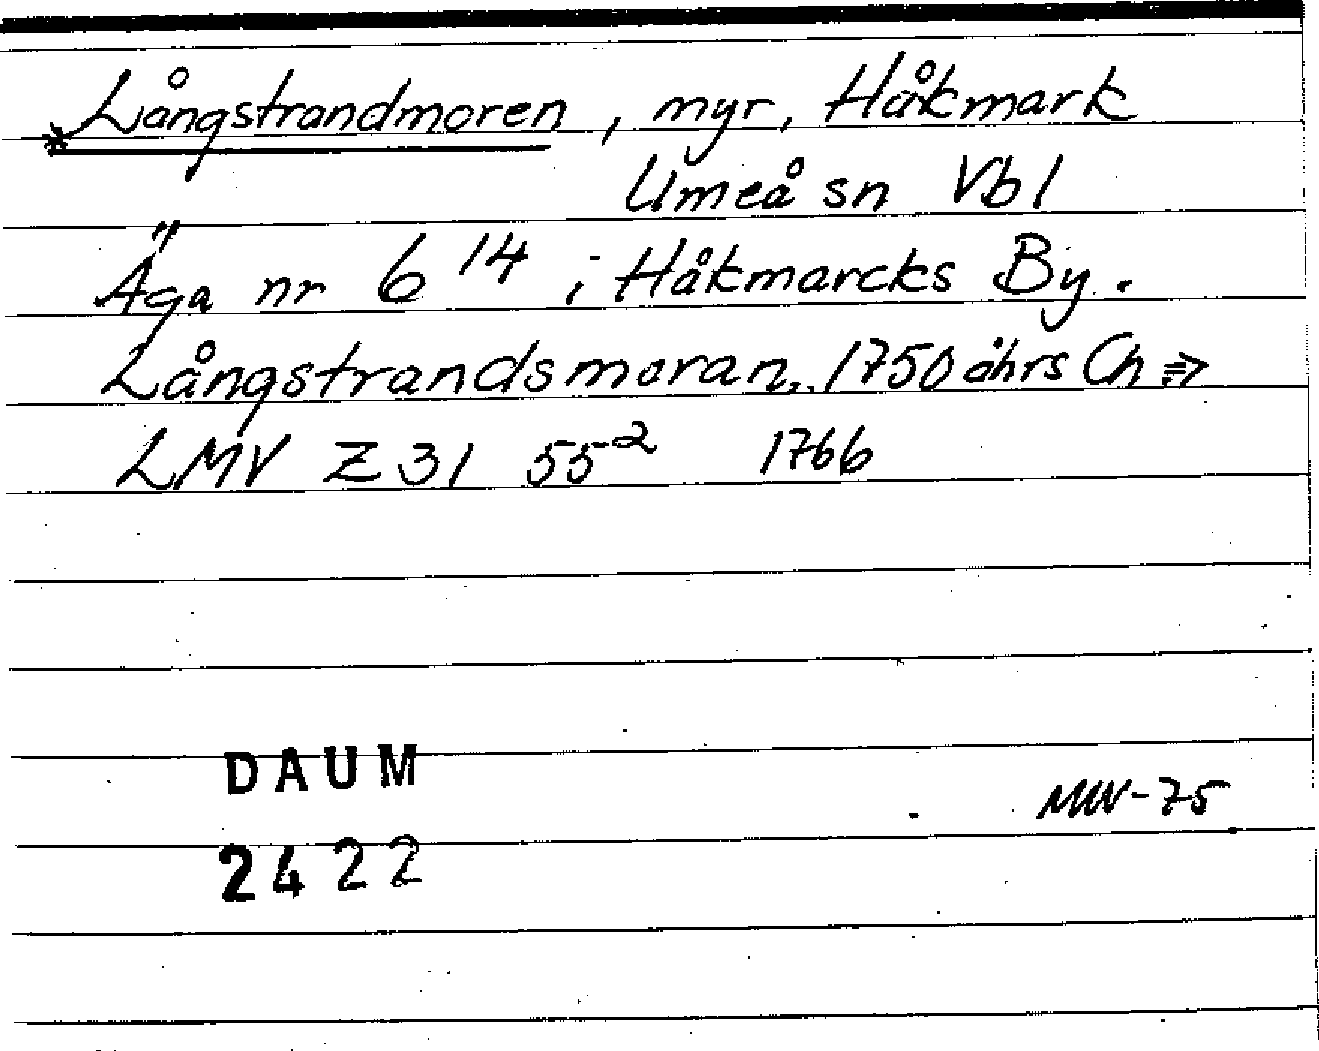 *Långstrandmoren, myr, Håkmark
Umeå sn Vbl
Äga nr 6 14 i Håkmarcks By.
Långstrandsmoran, 1750 åhrs Ch =>
LMV Z 31 55² 1766
DAUM
MW-75
2422